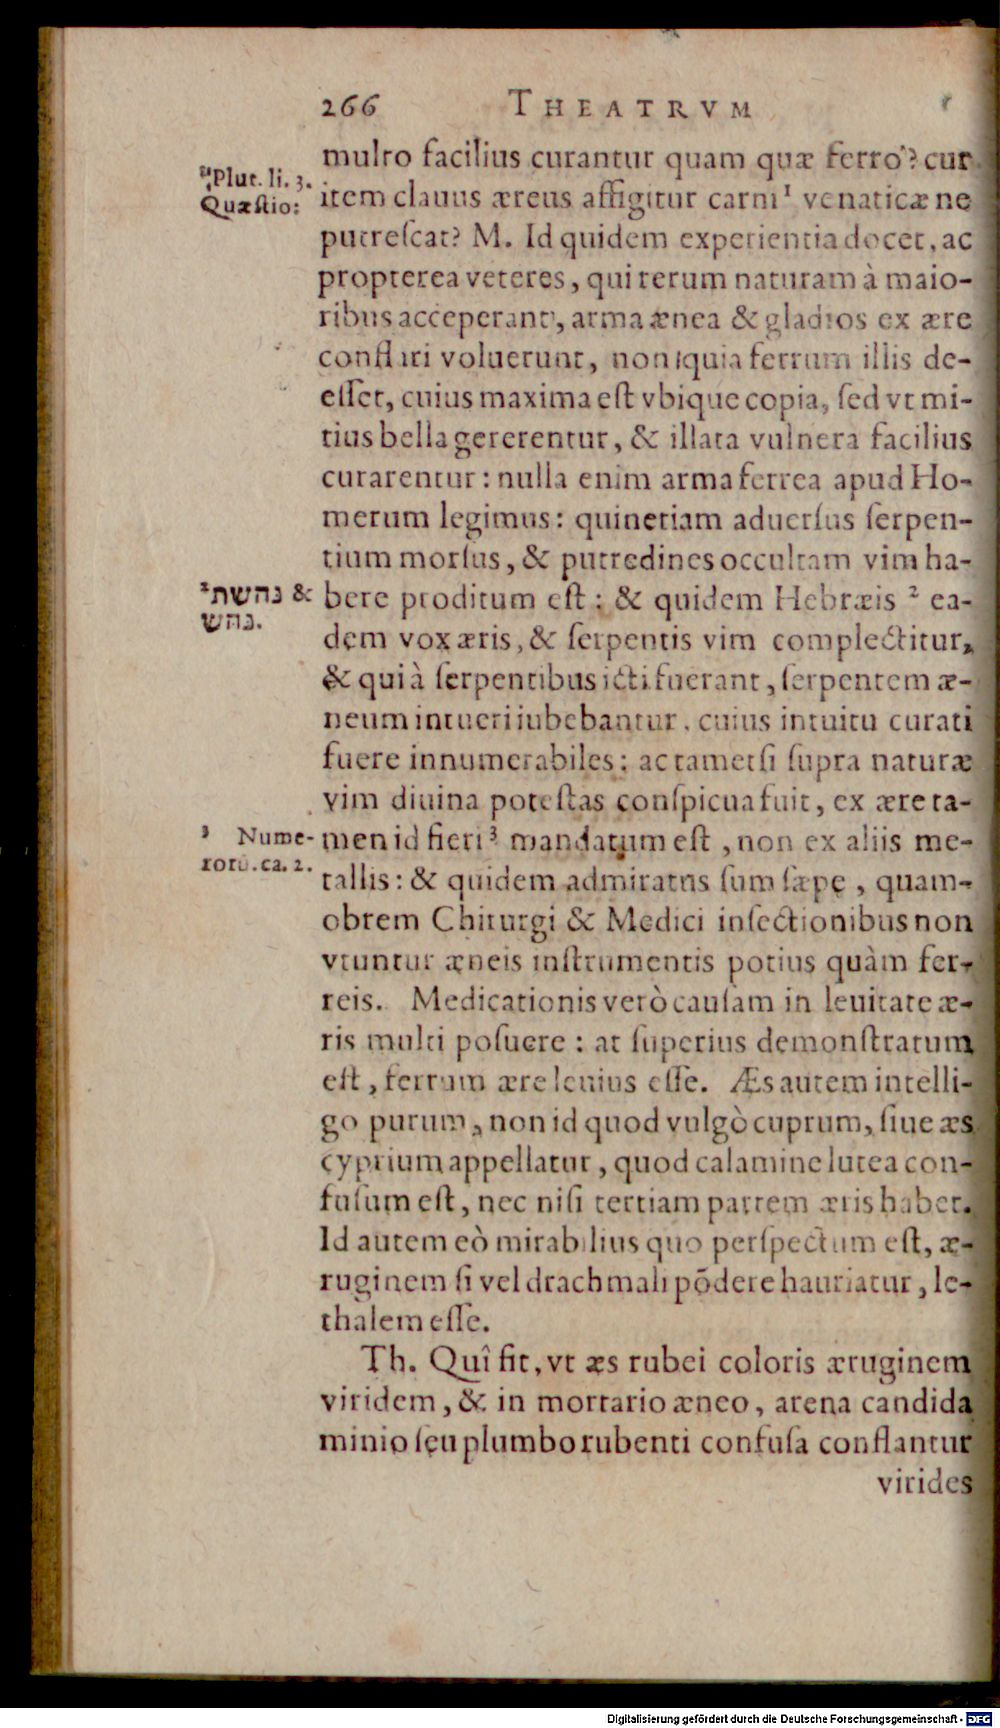 266 THEATRVM
multo facilius curantur quam quæ ferro? cur
item clauus æreus affigitur carni¹ venaticæ ne
putreſcat? M. Id quidem experientia docet, ac
propterea veteres, qui rerum naturam à maio-
ribus acceperant, arma ænea & gladios ex ære
conflari voluerunt, non quia ferrum illis de-
eſſet, cuius maxima eſt vbique copia, ſed vt mi-
tius bella gererentur, & illata vulnera facilius
curarentur: nulla enim arma ferrea apud Ho-
merum legimus: quinetiam aduerſus ſerpen-
tium morſus, & putredines occultam vim ha-
bere proditum eſt: & quidem Hebræis ² ea-
dem vox æris, & ſerpentis vim complectitur,
& qui à ſerpentibus icti fuerant, ſerpentem æ-
neum intueri iubebantur, cuius intuitu curati
fuere innumerabiles: ac tametſi ſupra naturæ
vim diuina poteſtas conſpicua fuit, ex ære ta-
men id fieri³ mandatum eſt, non ex aliis me-
tallis: & quidem admiratus ſum ſæpe, quam-
obrem Chirurgi & Medici inſectionibus non
vtuntur æneis inſtrumentis potius quàm fer-
reis. Medicationis verò cauſam in leuitate æ-
ris multi poſuere: at ſuperius demonſtratum
eſt, ferrum ære leuius eſſe. Æs autem intelli-
go purum, non id quod vulgò cuprum, ſiue æs
cyprium appellatur, quod calamine lutea con-
fuſum eſt, nec niſi tertiam partem æris habet.
Id autem eò mirabilius quo perſpectum eſt, æ-
ruginem ſi vel drachmali põdere hauriatur, le-
thalem eſſe.
Th. Quî fit, vt æs rubei coloris æruginem
viridem, & in mortario æneo, arena candida
minio ſeu plumbo rubenti confuſa conflantur
virides
¹Plut. li. 3.
Quæſtio:
²נחשת &
נחש.
³ Nume-
rorū. ca. 2.
Digitalisierung gefördert durch die Deutsche Forschungsgemeinschaft - DFG